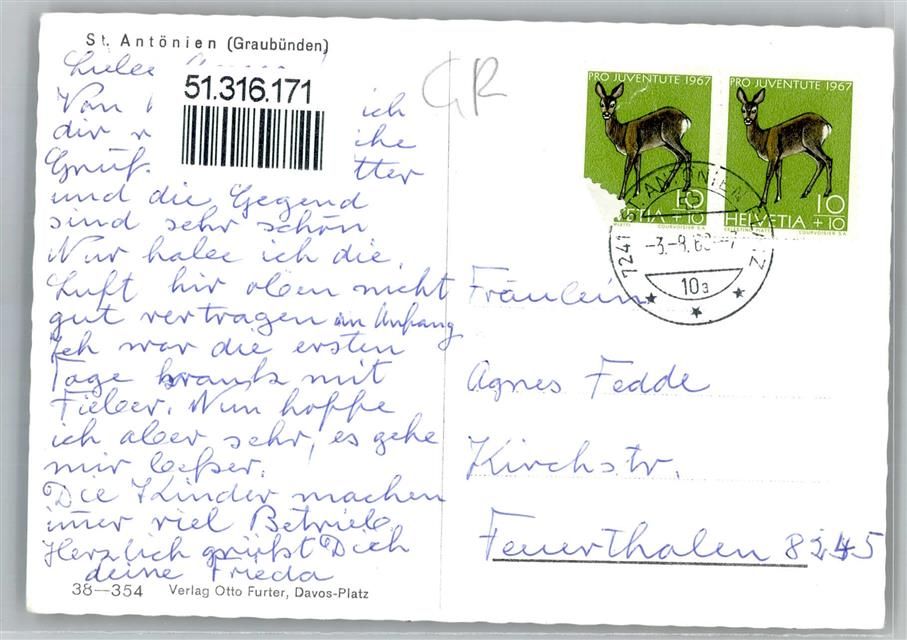 St. Antönien (Graubünden)
Liebe
51.316.171
Von ich
dir
Gruß.
und die Gegend
sind sehr schön
Nur habe ich die
Luft hir oben nicht
gut vertragen im Anfang
Ich war die ersten
Tage krank mit
Fieber. Nun hoffe
ich aber sehr, es gehe
mir beßer.
Die Kinder machen
imer viel Betrieb
Herzlich grüßt Dich
deine Frieda
38—354 Verlag Otto Furter, Davos-Platz
GR
PRO JUVENTUTE 1967
10
HELVETIA +10
COURVOISIER S.A.
PRO JUVENTUTE 1967
10
HELVETIA +10
CELESTINO PIATTI COURVOISIER S.A.
7241 ST. ANTÖNIEN
-3.-9.68--7
10a
Fräulein
Agnes Fedde
Kirchstr.
Feuerthalen 8245